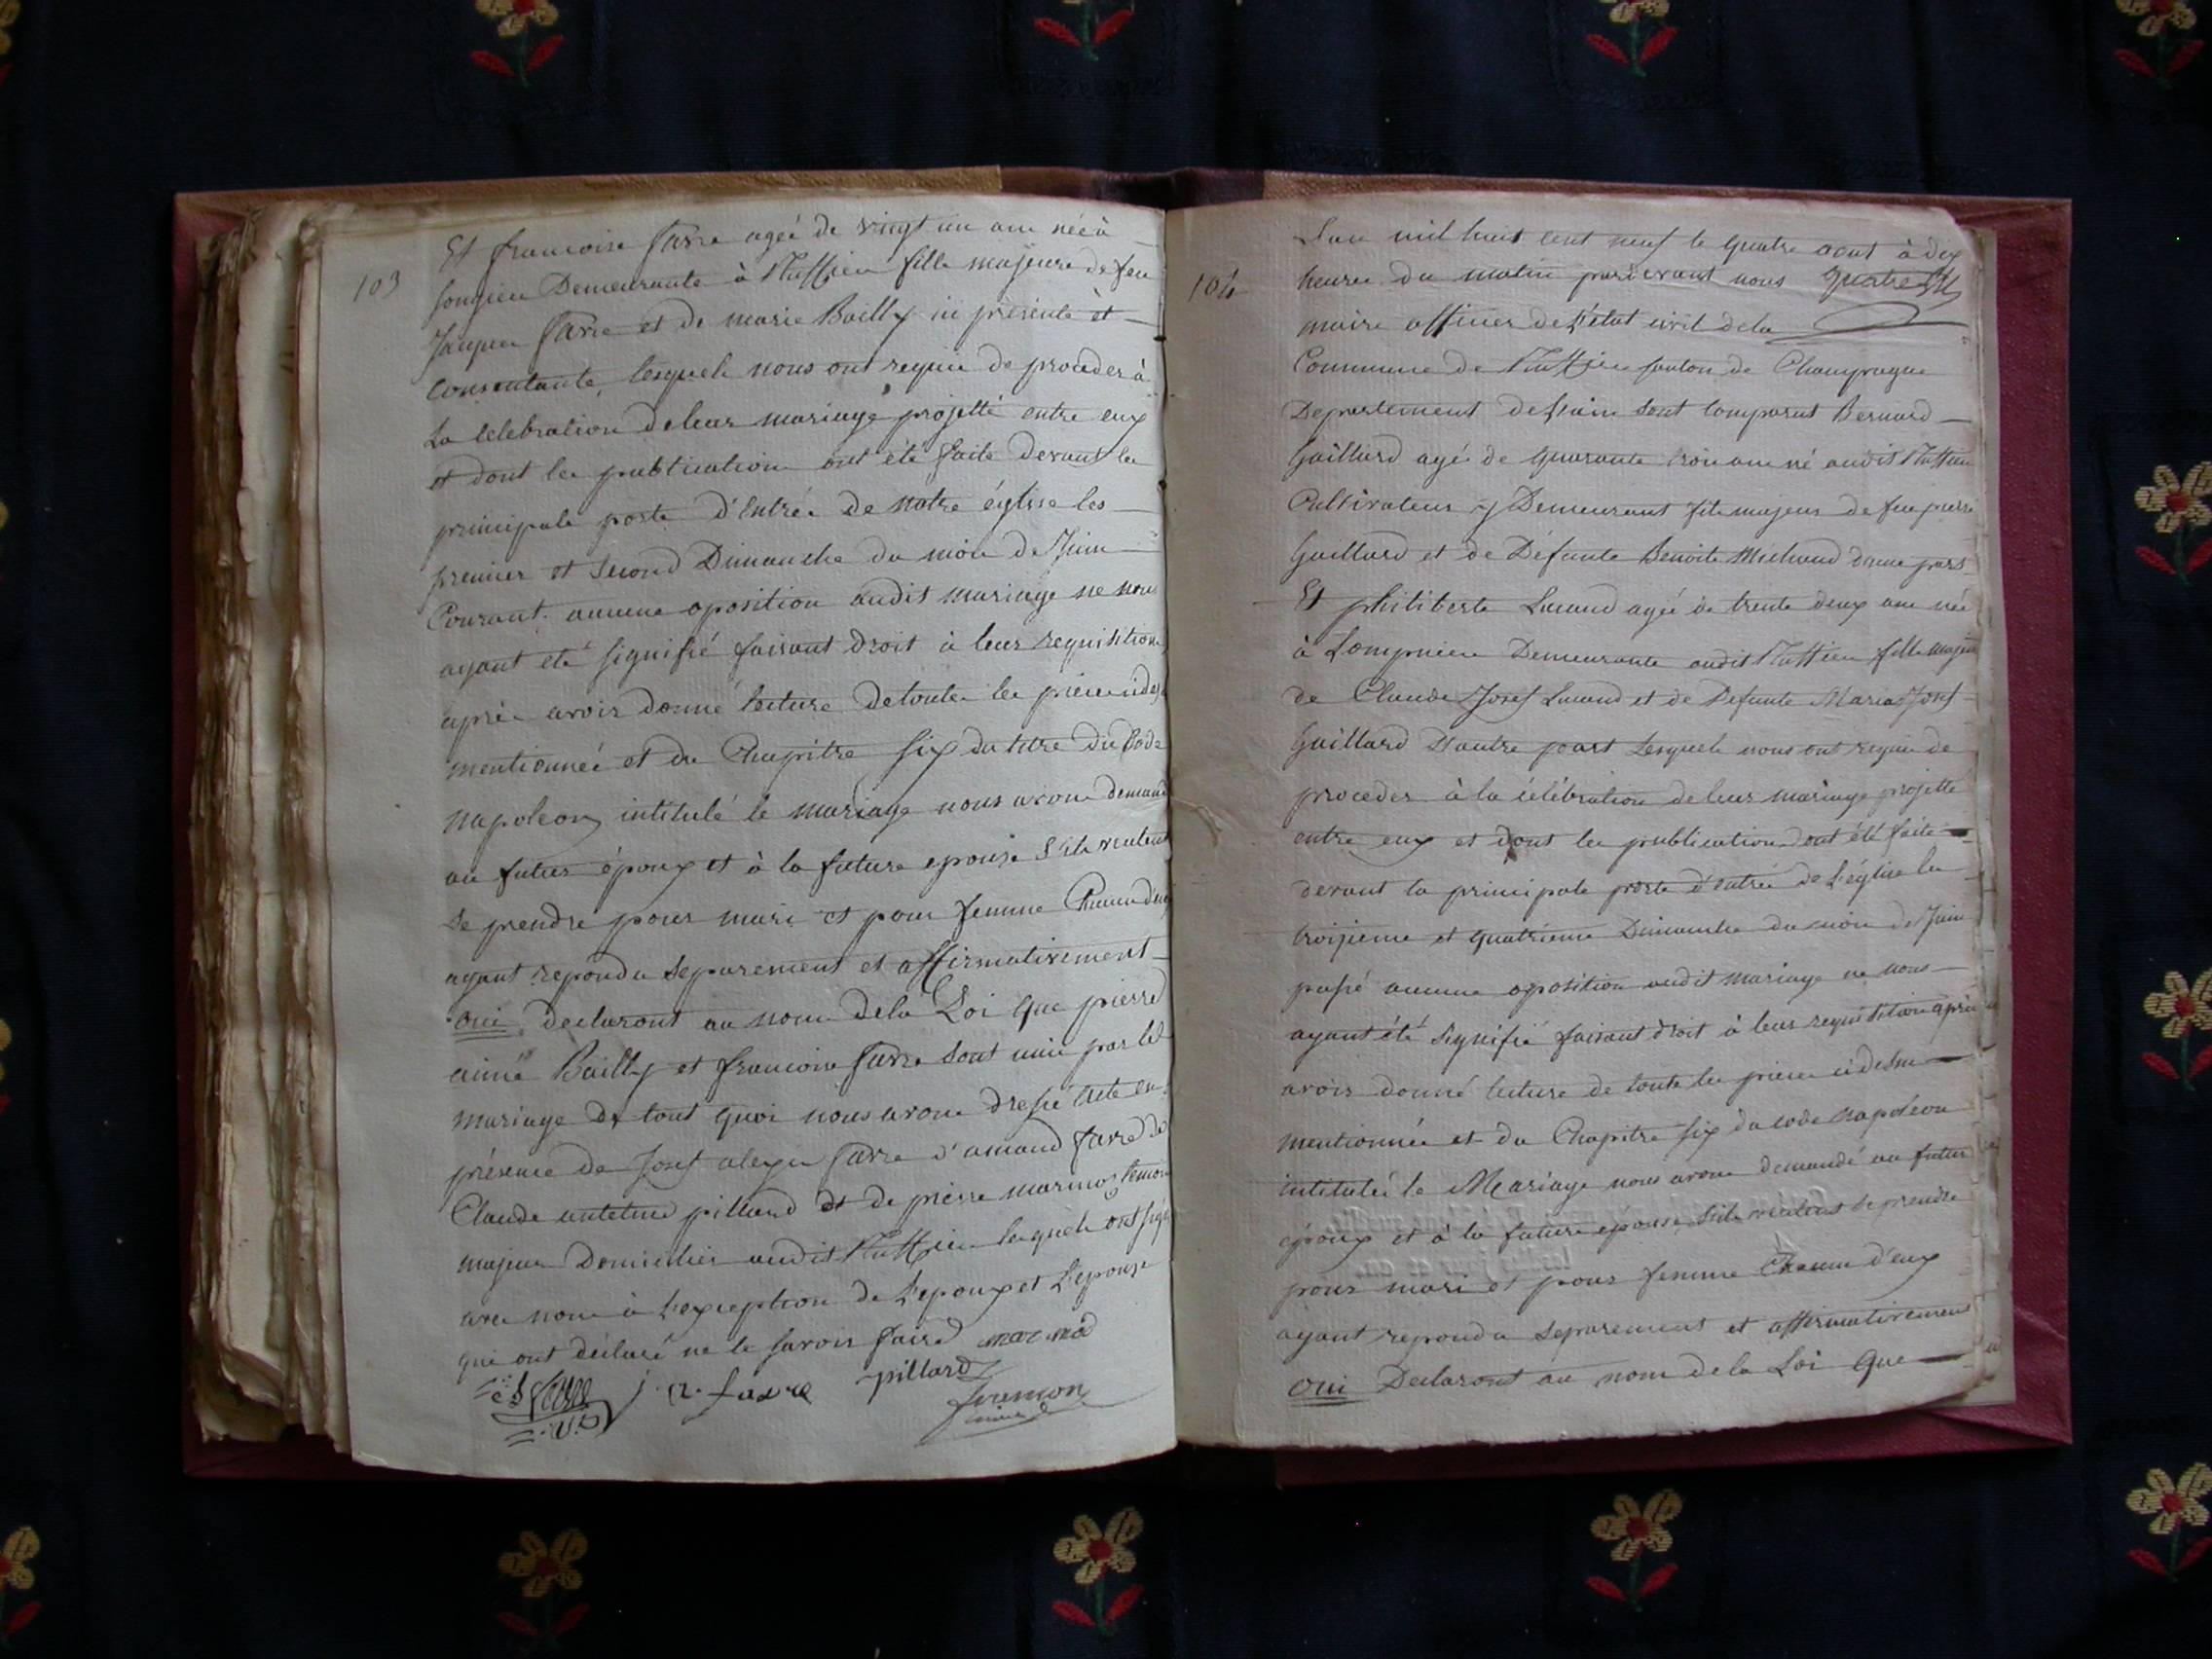 103
Et francoise favre agée de vingt un ans née à
songieu Demeurante à Ruffieu fille majeure de feu
Jacques favre et de marie Bailly ici présente et
consentante, lesquels nous ont requis de proceder à
La celebration de leur mariage projetté entre eux
et dont les publications ont été faite devant la
principale porte d'Entrée de notre église les
premier et second Dimanche du mois de Juin
Courant. aucune oposition audit mariage ne nous
ayant eté signifié faisant droit à leur requisition
après avoir donné lecture de toutes les pièces cides
mentionnée et du Chapitre six du titre du Code
napoleon intitulé le mariage nous avons demandé
au futur époux et à la future epouse s'ils veulent
se prendre pour mari et pour femme Chacun d'eux
ayant repondu separement et affirmativement
oui declaront au nom de la Loi que pierre
aimé Bailly et francoise favre sont unis par le
mariage de tout quoi nous avons dressé acte en
présence de Josef alexis favre d'amand favre de
Claude antelme pilland et de pierre marmo temoins
majeurs Domiciliés audit Ruffieu lesquels ont signé
avec nous à L'exception de L'epoux et L'epouse
qui ont déclaré ne le savoir faire marmod
favre j. a. favre pillard
maire
104
L'an mil huit cent neuf le quatre aout à dix
heures du matin pardevant nous
maire officier de L'etat civil de la
Commune de Ruffieu canton de Champagne
Departement de L'ain sont comparus Bernard
Gaillard agé de quarante trois ans né audit Ruffieu
Cultivateur y Demeurant fils majeur de feu pierre
Gaillard et de Défunte Benoite Michaud d'une part
Et philiberte Lucand agée de trente deux ans née
à Lompnieu Demeurante audit Ruffieu fille majeure
de Claude Josef Lucand et de Defunte Marie Josef
Gaillard D'autre part Lesquels nous ont requis de
proceder à la célébration de leur mariage projetté
entre eux et dont les publications ont été faite
devant la principale porte d'entrée de L'église les
troisieme et quatrieme Dimanche du mois de Juin
passé aucune oposition audit mariage ne nous
ayant été signifié faisant droit à leur requisition après
avoir donné lecture de toute les pièces cidessus
mentionnée et du Chapitre six du code napoleon
intitulé le Mariage nous avons demandé au futur
époux et à la future épouse s'ils veulent se prendre
pour mari et pour femme Chacun d'eux
ayant repondu separement et affirmativement
oui Declaront au nom de la Loi que